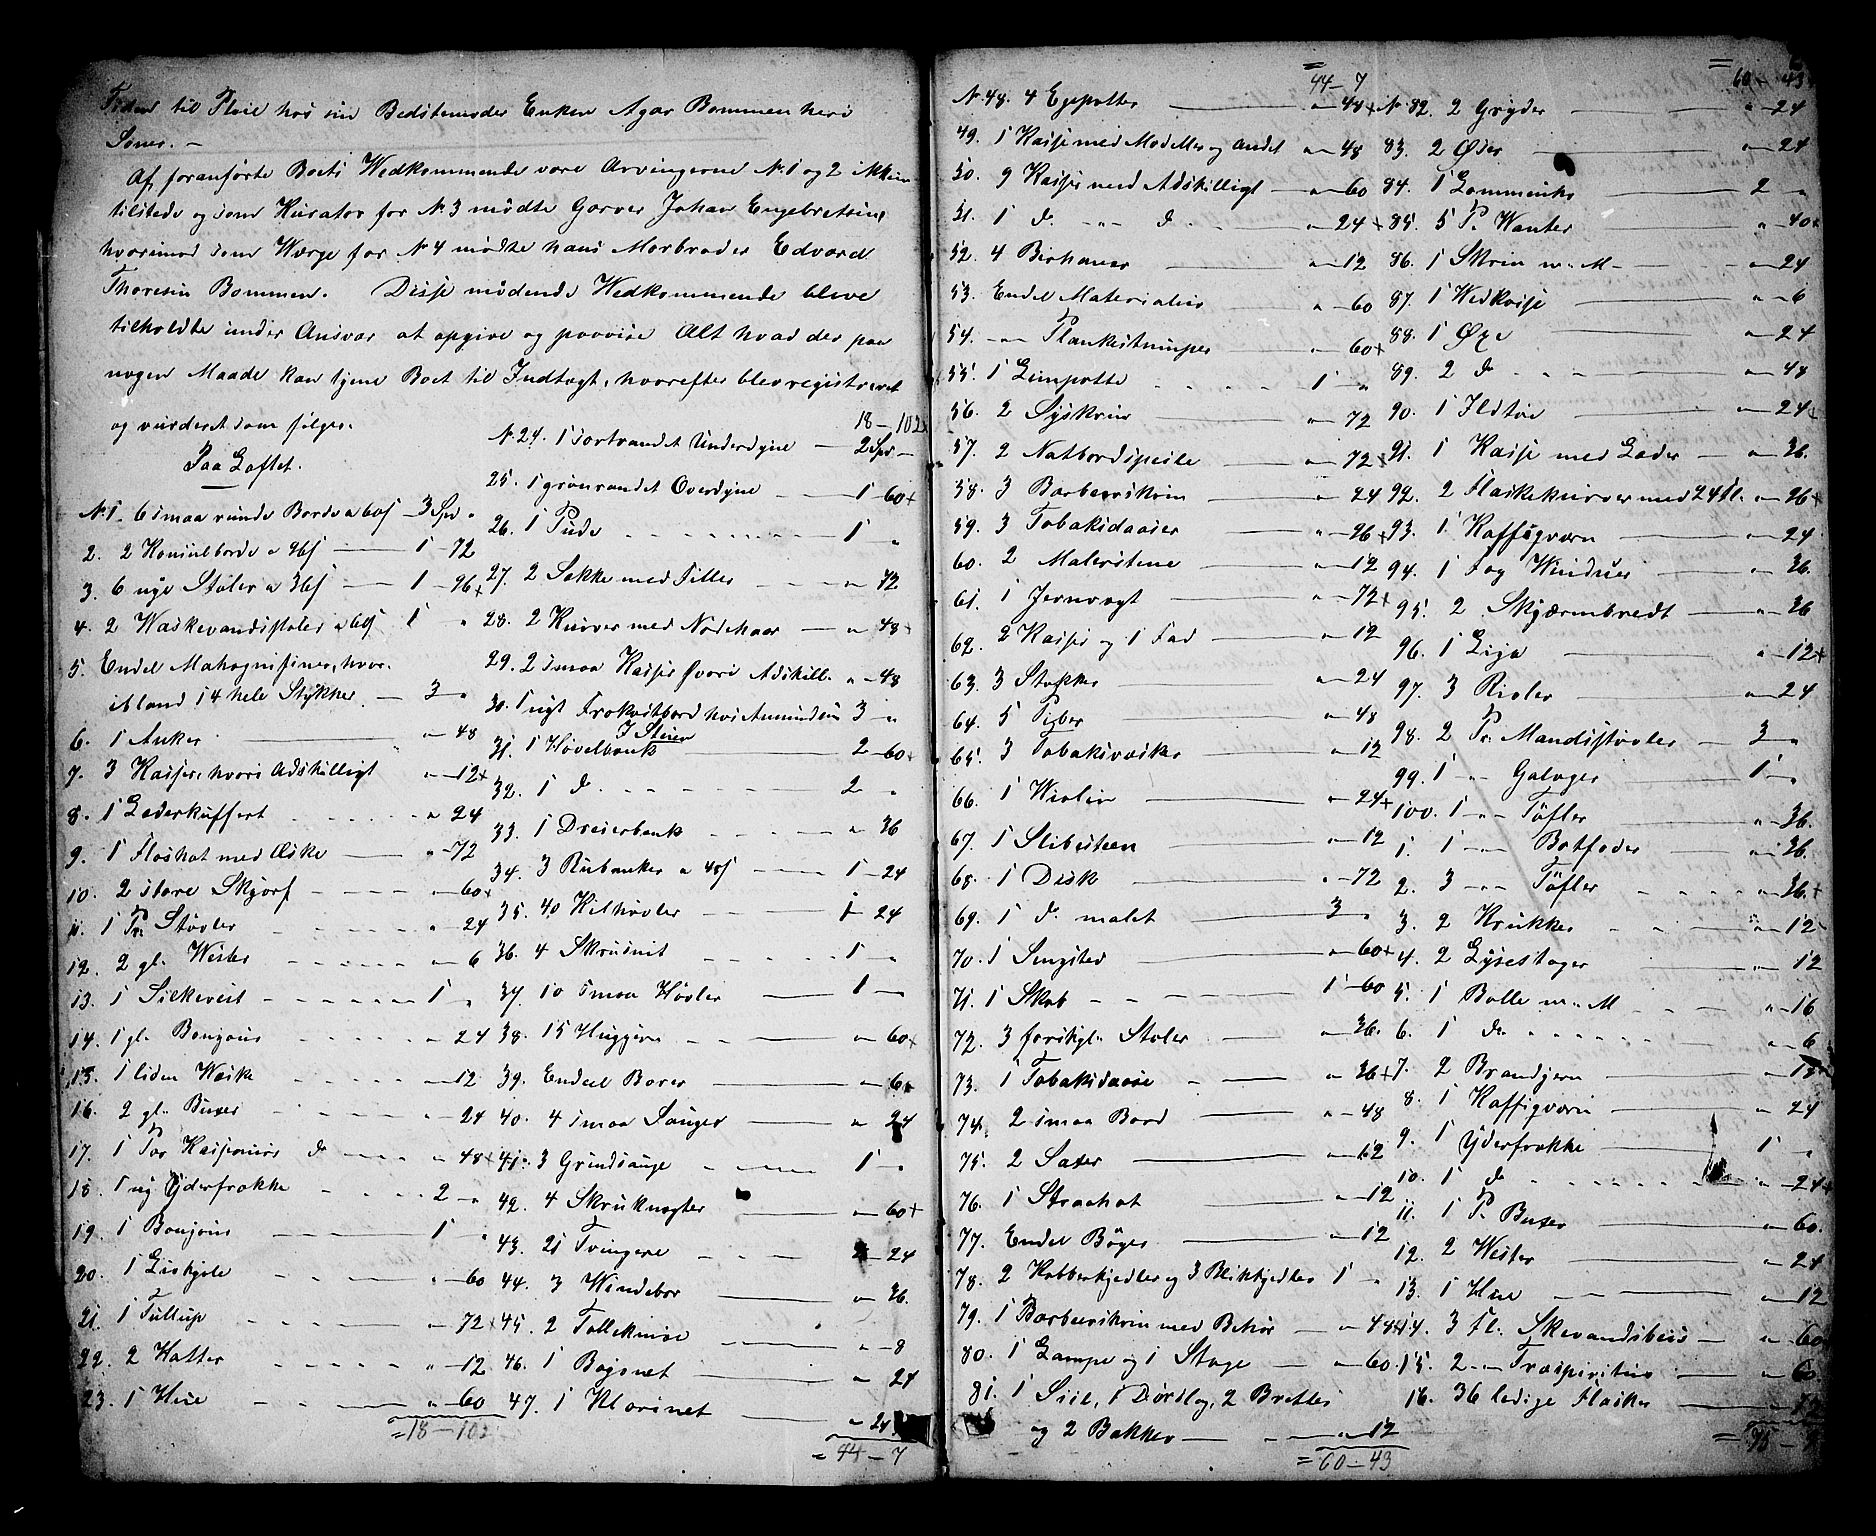 Tiden til Pleie hos sin Bedstemoder Enken Agar Bommen heri
Sone. –
Af foranførte Boets Wedkommende vare Arvingerne N. 1 og 2 ikke
tilstede og som Kurator for N. 3 mødte Garver Johan Engebretsen,
hvorimod som Werge for N. 4 mødte hans Morbroder Edvard
Thoresen Bommen. Disse mødende Wedkommende bleve
tilholdte under Ansvar at opgive og paavise Alt hvad der paa
nogen Maade kan tjene Boet til Indtægt, hvorefter blev registreret
og vurderet som følger.
Paa Loftet.
N. 1. 6 smaa runde Borde a 60 s – 3 Spd "
2. 2 Konsulborde a 96 s – 1 – 72
3. 6 nye Stoler a 36 s – 1 – 96
4. 2 Waskevandsstoler a 60 s 1 "
5. Endel Mahognifiner, hvor-
ibland 14 hele Stykker – 3 "
6. 1 Anker – " – 48
7. 3 Kasser, hvori Adskilligt " – 12
8. 1 Læderkuffert " 24
9. 1 Floshat med Æske " – 72
10. 2 store Skjørf " – 60
11. 1 Pr. Støvler " 24
12. 2 gl. Wester " – 6
13. 1 Silkevest 1 "
14. 1 gl. Bonjour " 24
15. 1 liden Waske " – 12
16. 2 gl. Buxer " – 24
17. 1 Par Kasjemirs do " – 48
18. 1 ny Yderfrakke 2 "
19. 1 Bonjour 1 "
20. 1 Liskjole " – 60
21. 1 Tullup " – 72
22. 2 Hatter " – 12
23. 1 Hue " – 60
= 18 – 102
18 – 102
N. 24. 1 sortrandet Underdyne – 2 Spd –
25. 1 grønrandet Overdyne – 1 – 60
26. 1 Pude 1 "
27. 2 Sække med Filler " 72
28. 2 Kurver med Nødehaar " – 48
29. 2 smaa Kasser hvori Adskill. " – 48
30. 1 nyt Frokostbord hos Amundsen 3 "
I Stuen
31. 1 Høvelbænk 2 – 60
32. 1 do 2 "
33. 1 Dreierbænk " 36
34. 3 Rubanker a 48 s 1 – 24
35. 40 Kilhøvler 1 – 24
36. 4 Skrustit 1 –
37. 10 smaa Høvler 1 –
38. 15 Huggjern " – 60
39. Endeel Borer " – 60
40. 4 smaa Sauger " 24
41. 3 Grindsauge 1 "
42. 4 Skruknægter " – 60
43. 21 Tvingere 2 – 24
44. 3 Windebor " 36
45. 2 Tolleknive " – 8
46. 1 Bajonet " 24
47. 1 Klarinet " 24
= 44 – 7
= 44 – 7
N. 48. 4 Egepotter " – 48
49. 1 Kasse med Modeller og andet " – 48
50. 9 Kasser med Adskilligt " – 60
51. 1 do " do " – 24
52. 4 Birhaner " – 12
53. Endel Materialier " – 60
54. – " – Plankestumper " – 60
55. 1 Limpotte 1 "
56. 2 Syskrin " – 72
57. 2 Natbordspeile " – 72
58. 3 Barbeerskrin " 24
59. 3 Tobaksdaaser " – 96
60. 2 Malerstene " – 12
61. 1 Jernvægt " – 72
62. 2 Kasser og 1 Fad " – 12
63. 3 Stokke " – 24
64. 5 Piber " – 48
65. 3 Tobaksvæsker " – 12
66. 1 Wiolin " – 24
67. 1 Slibesteen " – 12
68. 1 Disk " – 72
69. 1 do malet 3 "
70. 1 Sengsted " – 60
71. 1 Skab 1 – 60
72. 3 forskjl. Stoler " – 36
73. 1 Tobaksdaase " – 36
74. 2 smaa Bord " – 48
75. 2 Saxer " 12
76. 1 Straahat " – 12
77. Endel Bøger " – 12
78. 2 Kobberkjedler og 3 Blikkjedler 1 "
79. 1 Barbeerskrin med Behør " – 48
80. 1 Lampe og 1 Stage " – 60
81. 1 Siil, 1 Dørslag, 2 Bretter
og 2 Bakker – " – 12
= 60 – 43
= 60 – 43
N. 82. 2 Gryder " – 24
83. 2 Øser " – 24
84. 1 Lommeuhr 2 "
85. 5 Pr. Wanter " – 40
86. 1 Skrin m. M. " – 24
87. 1 Wedkasse " – 6
88. 1 Øxe " – 24
89. 2 do " – 48
90. 1 Ildtøi " – 24
91. 1 Kasse med Læder " – 36
92. 2 Flaskekurver med 24 fl. " – 96
93. 1 Kaffeqværn " – 24
94. 1 Fag Winduer " – 36
95. 2 Skjærmbredt " – 36
96. 1 Lija " – 12
97. 3 Rioler " – 24
98. 2 Pr. Mandsstøvler 3 "
99. 1 – " – Galoger 1 –
100. 1 – " – Tøfler " – 36
1. 1 – " – Botfoder " – 36
2. 3 – " – Tøfler " – 36
3. 2 Krukker " – 12
4. 2 Lysestager " – 12
5. 1 Balle m. M " – 16
6. 1 do " – 6
7. 2 Brandjern " – 12
8. 1 Kaffeqværn " – 24
9. 1 Yderfrakke 1 "
10. 1 do " – 24
11. 1 P. Buxer " – 60
12. 2 Wester " – 24
13. 1 Hue " – 12
14. 3 fl. Skevandsbeis " – 60
15. 2 – " – Træspiritus " – 60
16. 36 ledige Flasker " – 12
= 75 –